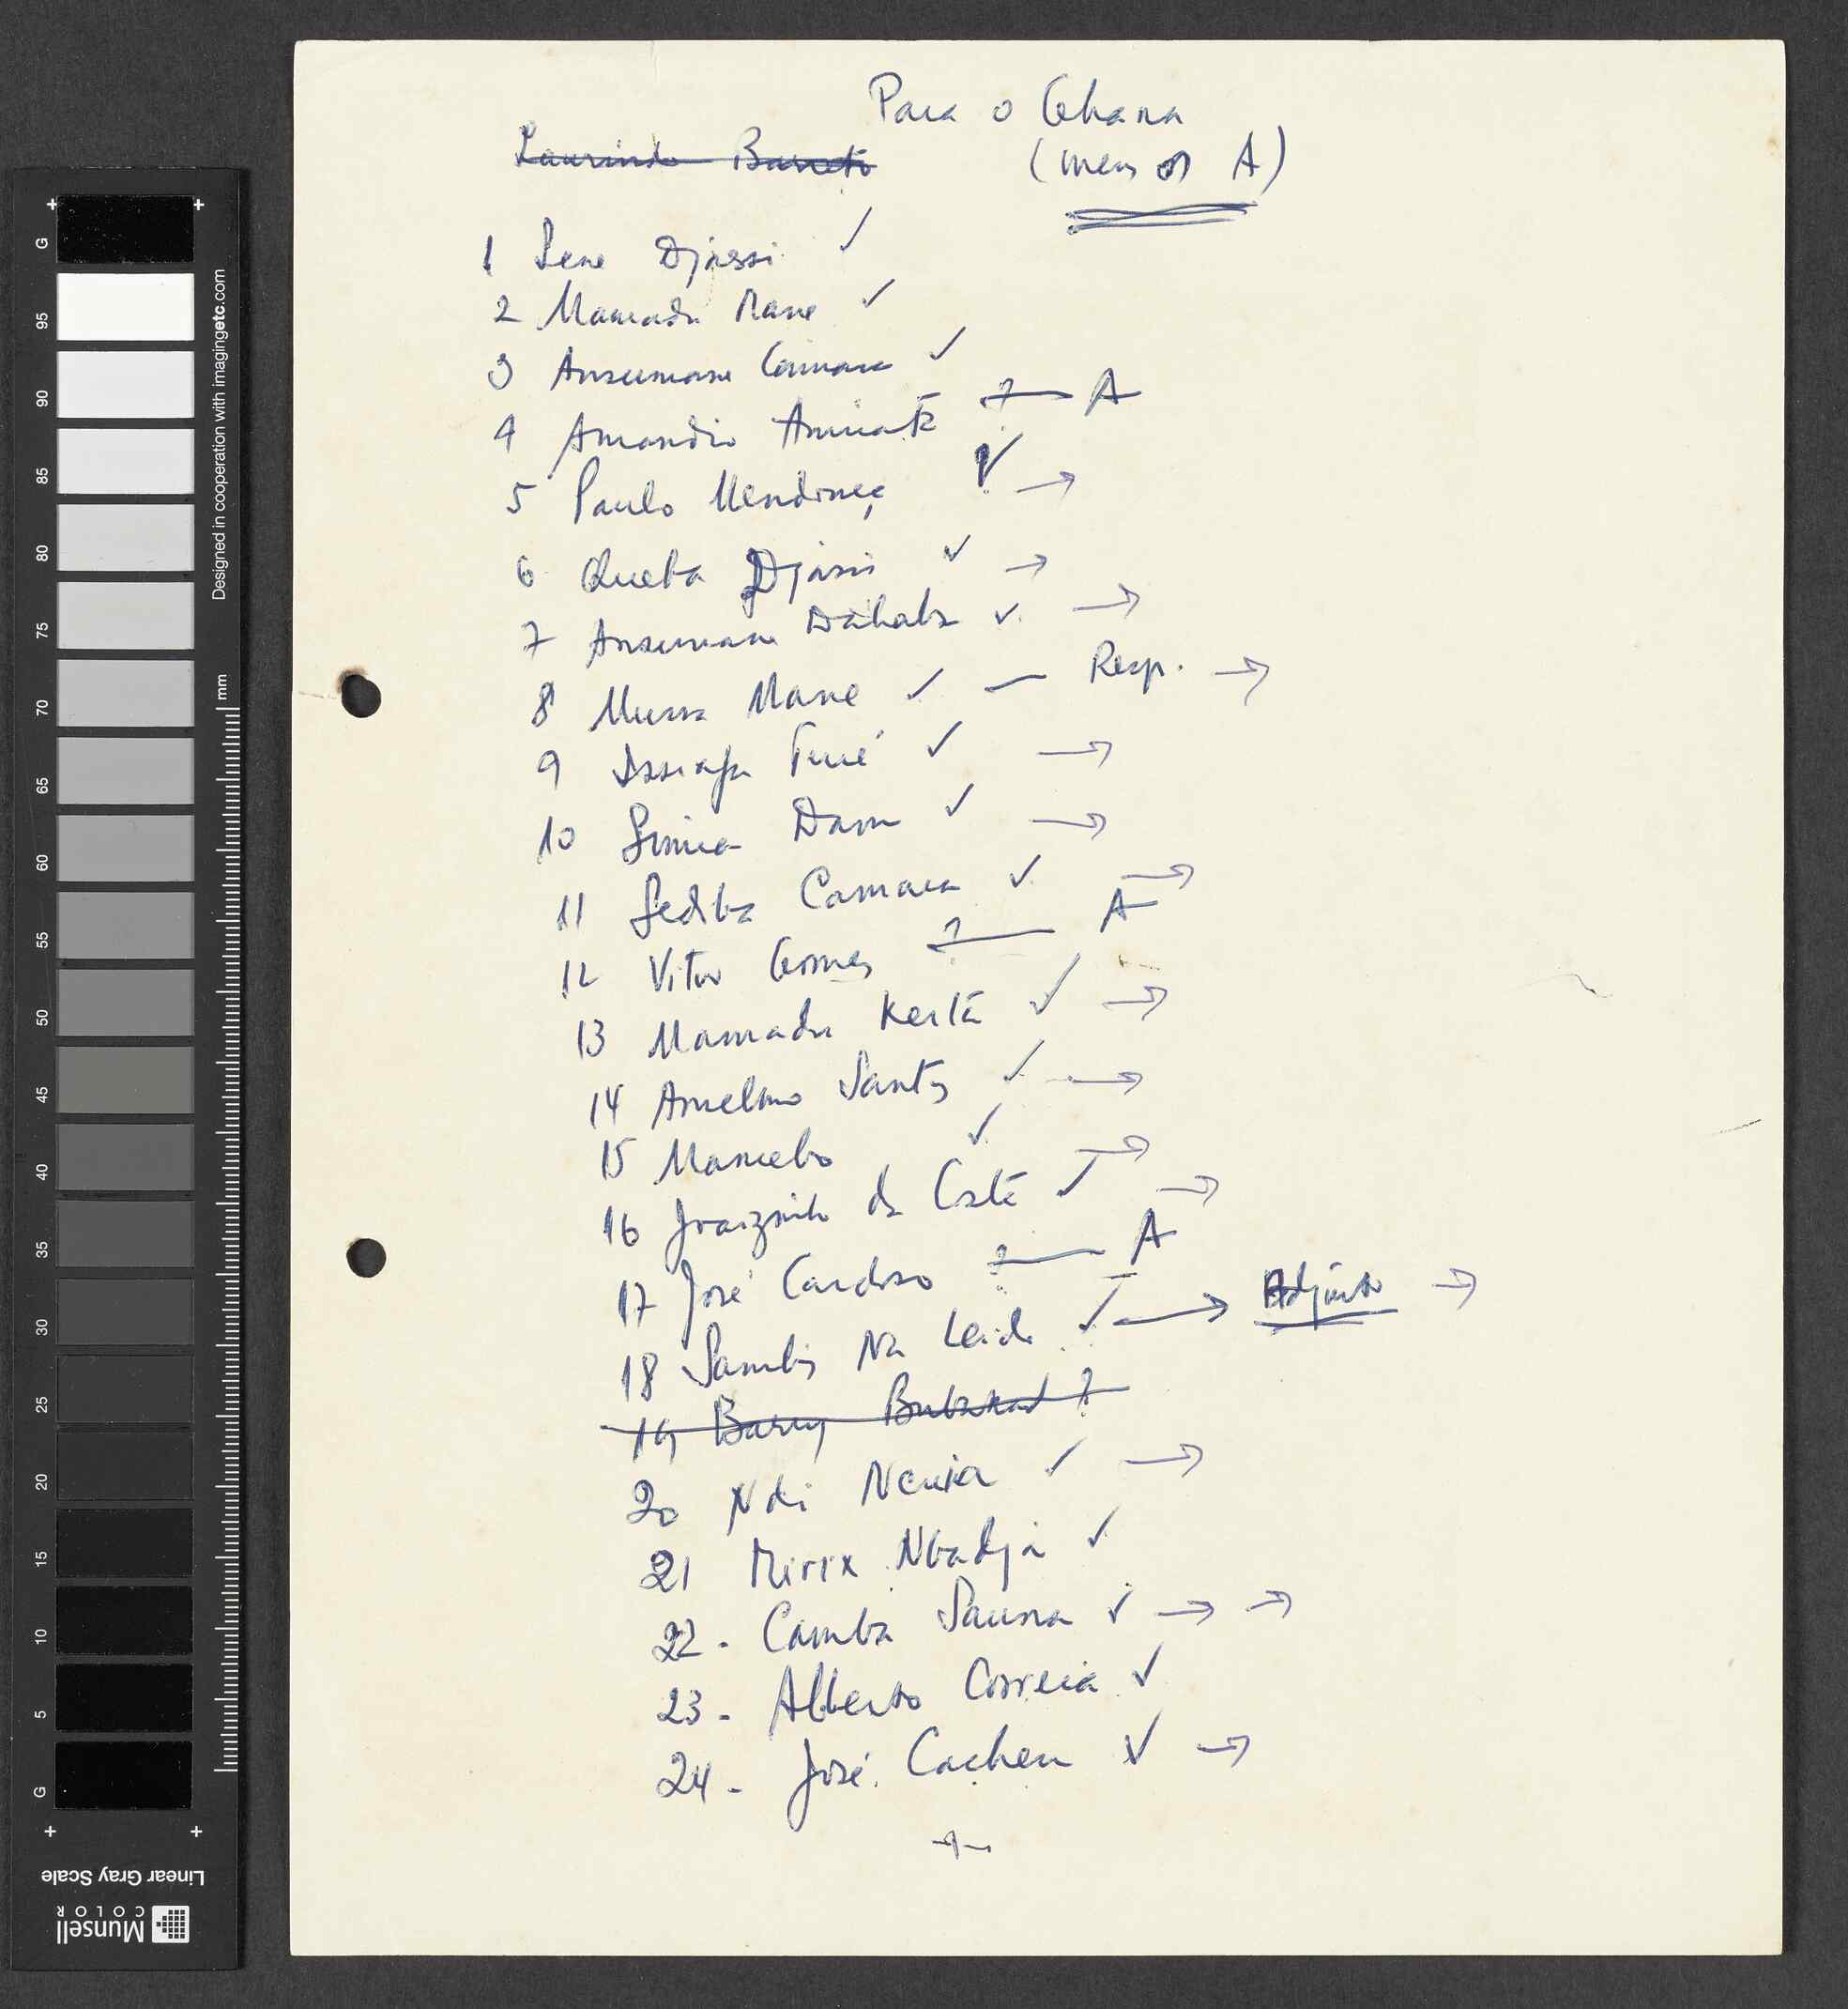 Para o Ghana
Laurindo Barreto
(menos A)
1 Sene Djassi ✓
2 Mamadu Mane ✓
3 Ansumane Camara ✓
4 Amandio ? — A
5 Paulo Mendonça ✓ →
6 Queba Djassi ✓ →
7 Ansumane Dahaba ✓ →
8 Mussa Mane ✓ — Resp. →
9 Turé ✓ →
10 Dam ✓ →
11 Sediba Camara ✓ →
12 Vitor Gomes ? — A
13 Mamadu Keita ✓ →
14 Anselmo Santos ✓ →
15 Mancebo ✓ →
16 Joãozinho da Costa ✓ →
17 José Cardoso ? — A
18 Na ✓ → Adjunto →
19 Barry Bubakar ?
20 Ndi ✓ →
21 Nbadja ✓
22 - Camba Sauna ✓ → →
23 - Alberto Correia ✓
24 - José Cacheu ✓ →
Designed in cooperation with imagingetc.com
mm
G 95 90 85 80 75 70 65 60 55 50 45 40 35 30 25 20 15 10 5 G
Linear Gray Scale
Munsell
COLOR